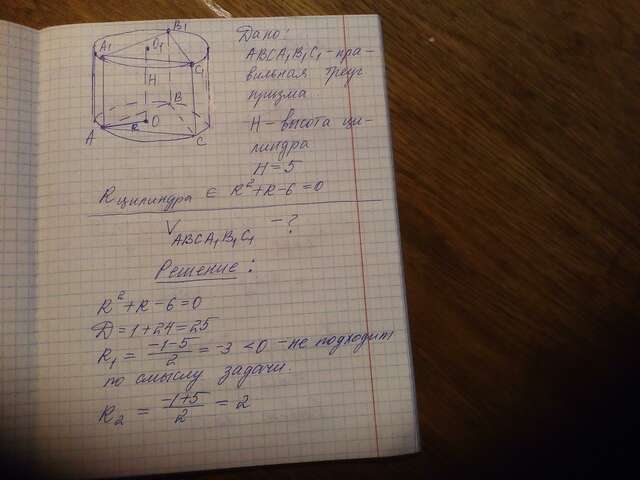 B₁
A₁
O₁
C₁
H
B
A
R
O
C
Дано:
ABCA₁B₁C₁ - пра-
вильная треуг
призма
H - высота ци-
линдра
H = 5
R цилиндра ∈ R² + R - 6 = 0
V ABCA₁B₁C₁ - ?
Решение:
R² + R - 6 = 0
D = 1 + 24 = 25
R₁ = (-1-5)/2 = -3 < 0 - не подходит
по смыслу задачи.
R₂ = (-1+5)/2 = 2